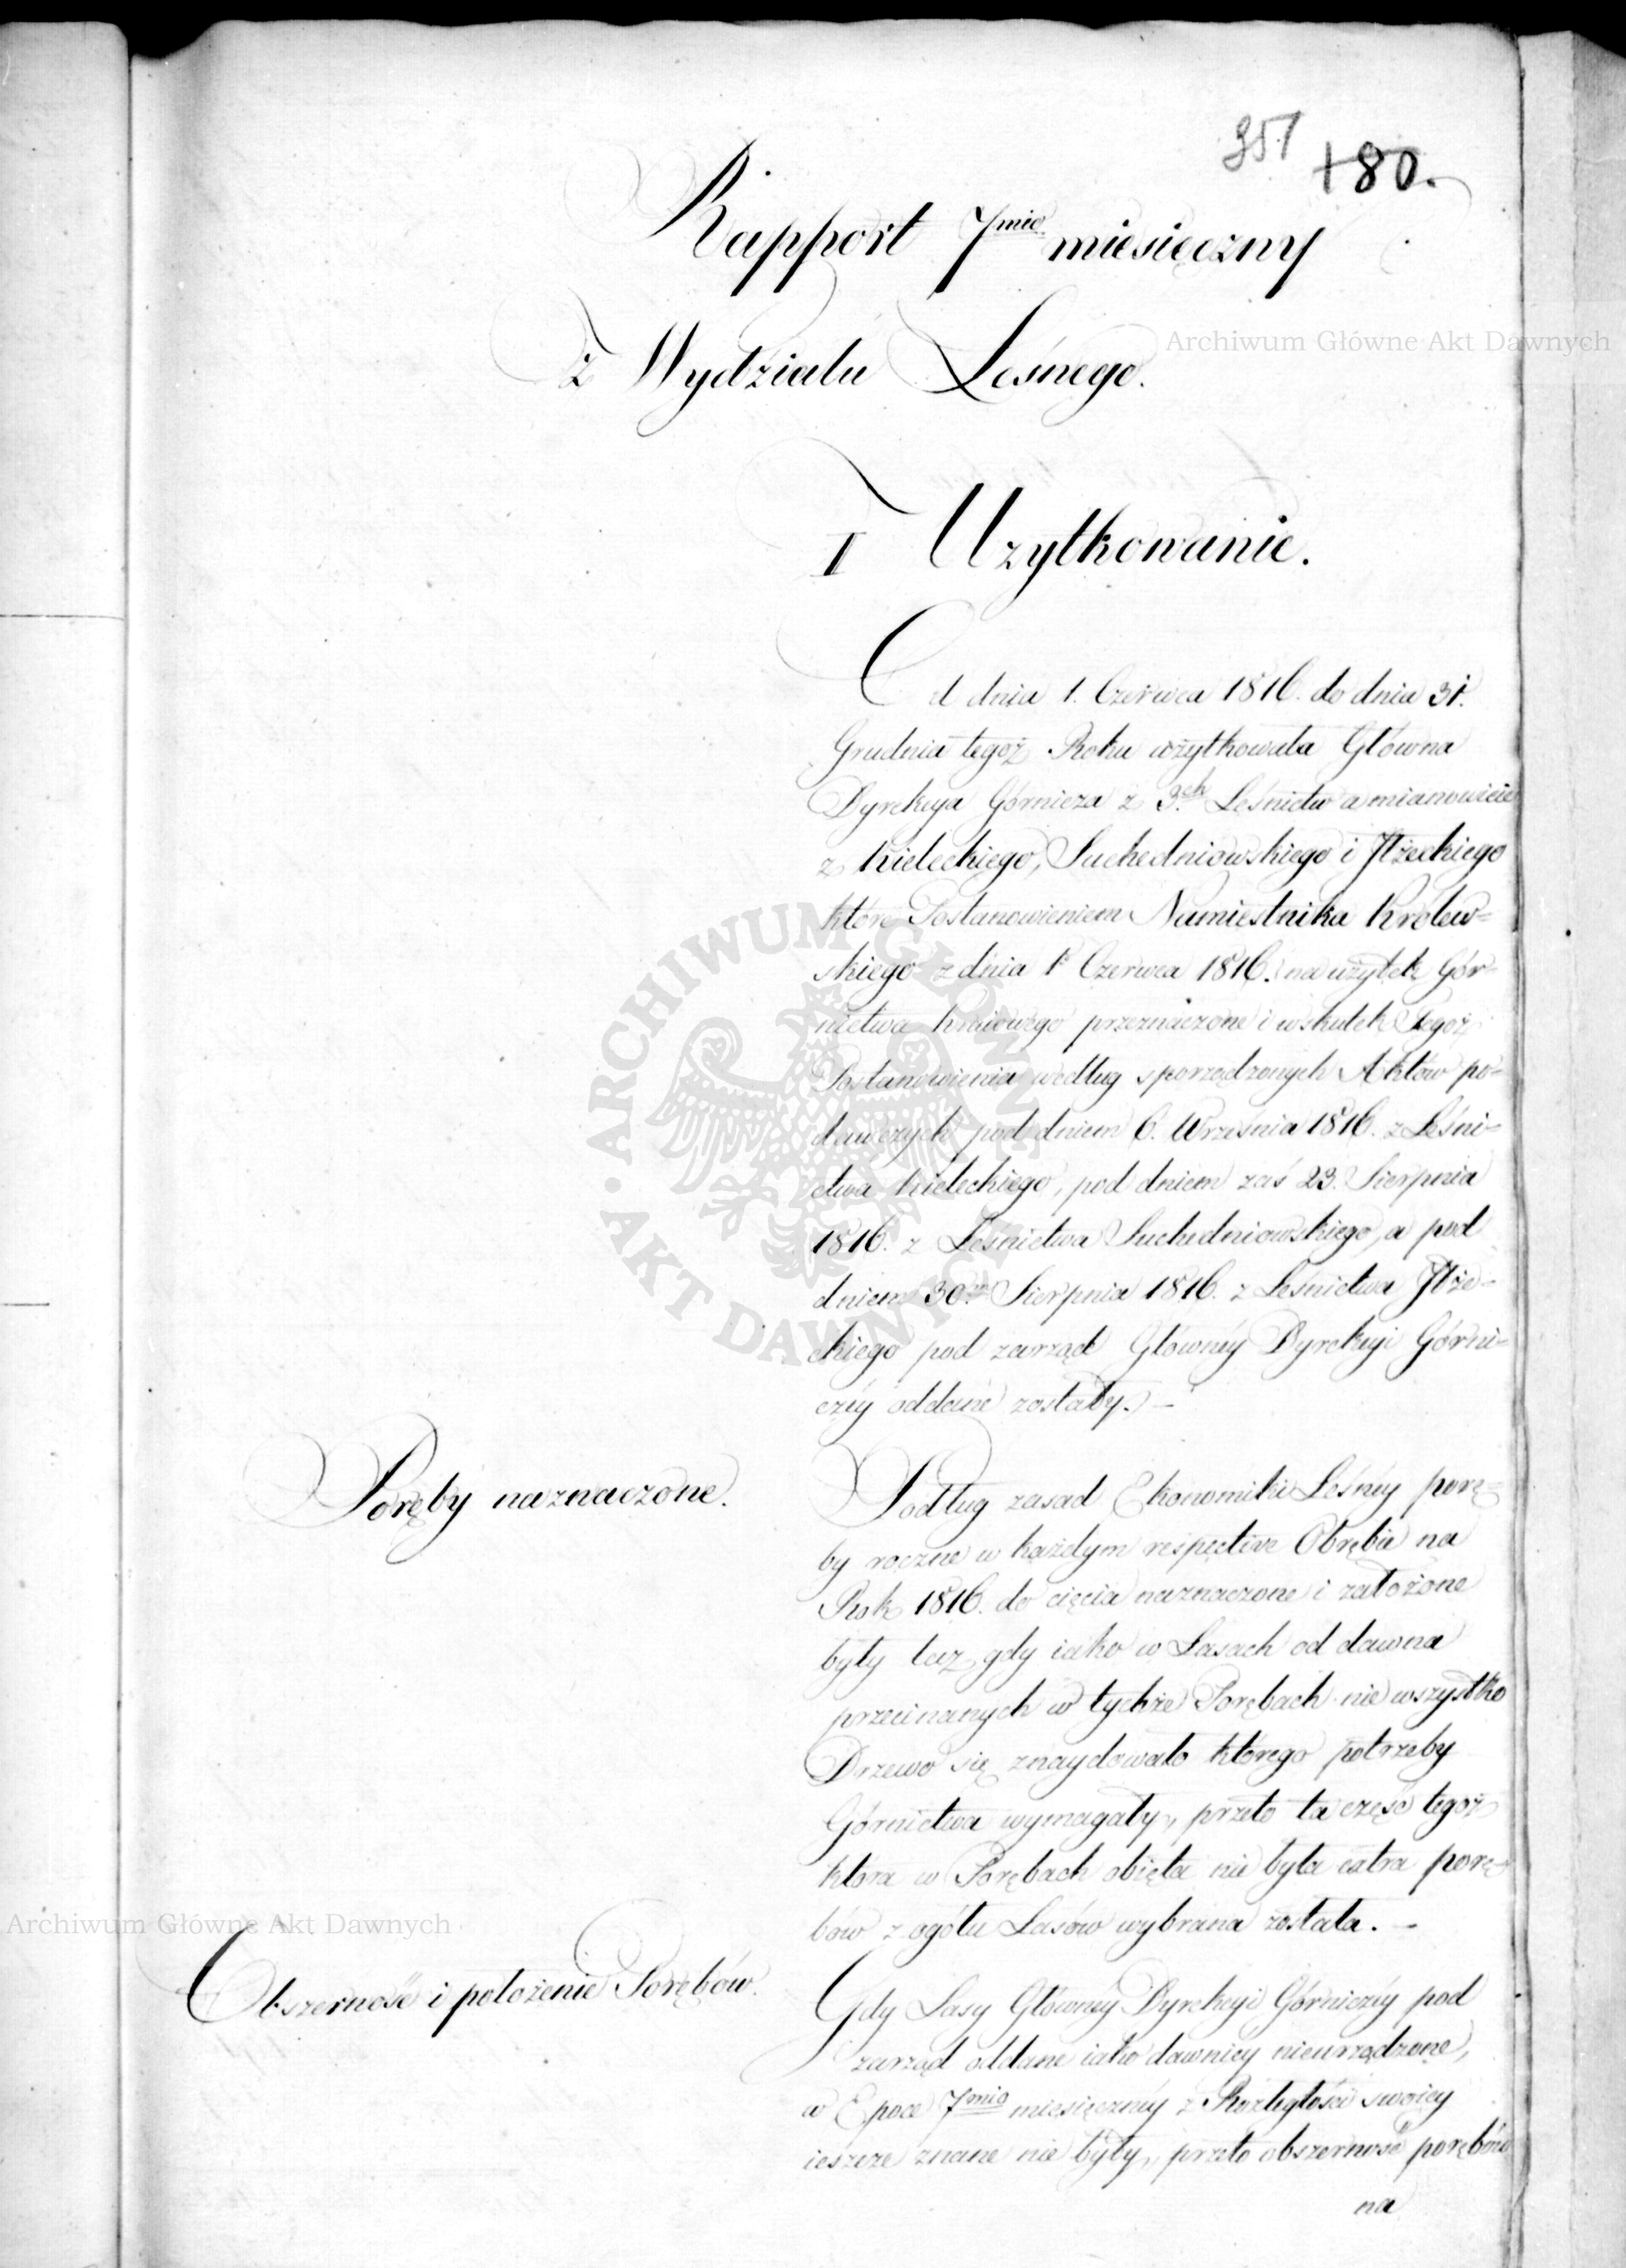 351 +80.
Rapport 7mio miesięczny
z Wydziału Leśnego.
Archiwum Główne Akt Dawnych
I Użytkowanie.
Od dnia 1. Czerwca 1816. do dnia 31.
Grudnia tegoż Roku użytkowała Główna
Dyrekcya Górnicza z 3ch Leśnictw a mianowicie
z Kieleckiego, Suchedniowskiego i Iłżeckiego
które Postanowieniem Namiestnika Królew=
skiego z dnia 1o Czerwca 1816. na użytek Gór=
nictwa kraiowego przeznaczone i wskutek Tegoż
Postanowienia według sporządzonych Aktów po=
dawczych pod dniem 6. Września 1816. z Leśni=
ctwa Kieleckiego, pod dniem zaś 23. Sierpnia
1816. z Leśnictwa Suchedniowskiego, a pod
dniem 30m Sierpnia 1816. z Leśnictwa Iłże=
ckiego pod zarząd Głównéy Dyrekcyi Górni=
czéy oddane zostały. –
ARCHIWUM GŁÓWNE · AKT DAWNYCH ·
Poręby naznaczone.
Podług zasad Ekonomiki Leśnéy porę=
by roczne w każdym respective Obrębie na
Rok 1816. do cięcia naznaczone i założone
były lecz gdy iako w Lasach od dawna
przecinanych w tychże Porębach nie wszystko
Drzewo się znaydowało którego potrzeby
Górnictwa wymagały, przeto ta część tegoż
która w Porębach obięta nie była extra porę=
bów z ogółu Lasów wybrana została. –
Archiwum Główne Akt Dawnych
Obszerność i położenie Porębów.
Gdy Lasy Głównéy Dyrekcyi Górniczéy pod
zarząd oddane iako dawniey nieurządzone,
w Epoce 7mio miesięcznéy z Rozległości swoiey
ieszcze znane nie były, przeto obszerność porębów
na